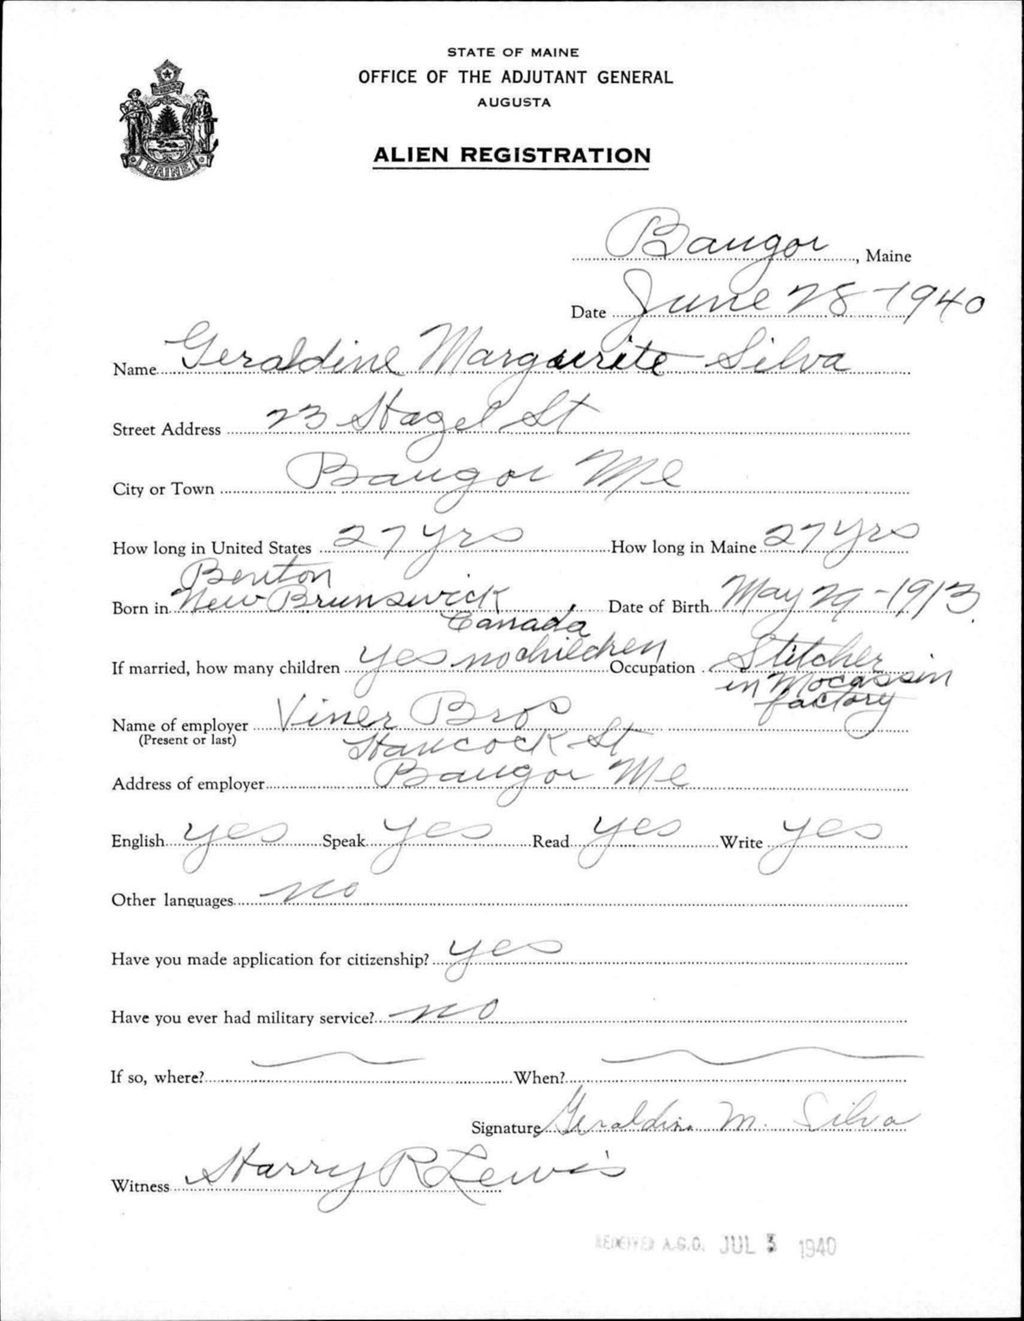 STATE OF MAINE
OFFICE OF THE ADJUTANT GENERAL
AUGUSTA
ALIEN REGISTRATION
MAINE
Bangor, Maine
Date June 28-1940
Name Geraldine Marguerite Silva
Street Address 23 Hazel St
City or Town Bangor Me
How long in United States 27 yrs How long in Maine 27 yrs
Benton
Born in New Brunswick Date of Birth May 29-1913.
Canada
If married, how many children yes no children Occupation Stitcher
in Mocassin
factory
Name of employer Viner Bros
(Present or last)
Hancock St
Address of employer Bangor Me
English yes Speak yes Read yes Write yes
Other languages no
Have you made application for citizenship? yes
Have you ever had military service? no
If so, where? When?
Signature Geraldine M. Silva
Witness Harry R Lewis
RECEIVED A.G.O. JUL 3 1940